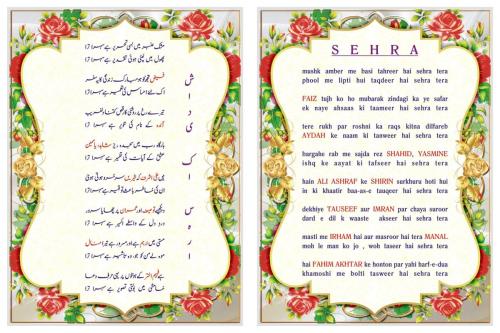 مشک عنبر میں بسی تحریر ہے سہرا ترا
پھول میں لپٹی ہوئی تقدیر ہے سہرا ترا
فیض تجھ کو ہو مبارک زندگی کا یہ سفر
اک نئے احساس کی تعمیر ہے سہرا ترا
تیرے رخ پر روشنی کا رقص کتنا دلفریب
کے نام کی تنویر ہے سہرا ترا
بارگاہ رب میں سجدہ ریز شاہد یاسمین
عشق کے آیات کی تفسیر ہے سہرا ترا
ہیں علی اشرف کہ شیریں سرخرو ہوتی ہوئی
ان کی خاطر باعث توقیر ہے سہرا ترا
دیکھئے توصیف اور عمران پر چھایا سرور
درد دل کے واسطے اکسیر ہے سہرا ترا
مستی میں ارحم ہے اور مسرور ہے تیرا منال
موہ لے من کو جو، وہ تاثیر ہے سہرا ترا
ہے فہیم اختر کے ہونٹوں پر یہی حرف دعا
خامشی میں بولتی تصویر ہے سہرا ترا
شادی کا سہرا
SEHRA
mashk amber me basi tahreer hai sehra tera
phool me lipti hui taqdeer hai sehra tera
FAIZ tujh ko ho mubarak zindagi ka ye safar
ek naye ahsaas ki taameer hai sehra tera
tere rukh par roshni ka raqs kitna dilfareb
AYDAH ke naam ki tanweer hai sehra tera
bargahe rab me sajda rez SHAHID, YASMINE
ishq ke aayat ki tafseer hai sehra tera
hain ALI ASHRAF ke SHIRIN surkhuru hoti hui
in ki khaatir baa-as-e tauqeer hai sehra tera
dekhiye TAUSEEF aur IMRAN par chaya suroor
dard e dil k waaste akseer hai sehra tera
masti me IRHAM hai aur masroor hai tera MANAL
moh le man ko jo , woh taseer hai sehra tera
hai FAHIM AKHTAR ke honton par yahi harf-e-dua
khamoshi me bolti tasweer hai sehra tera